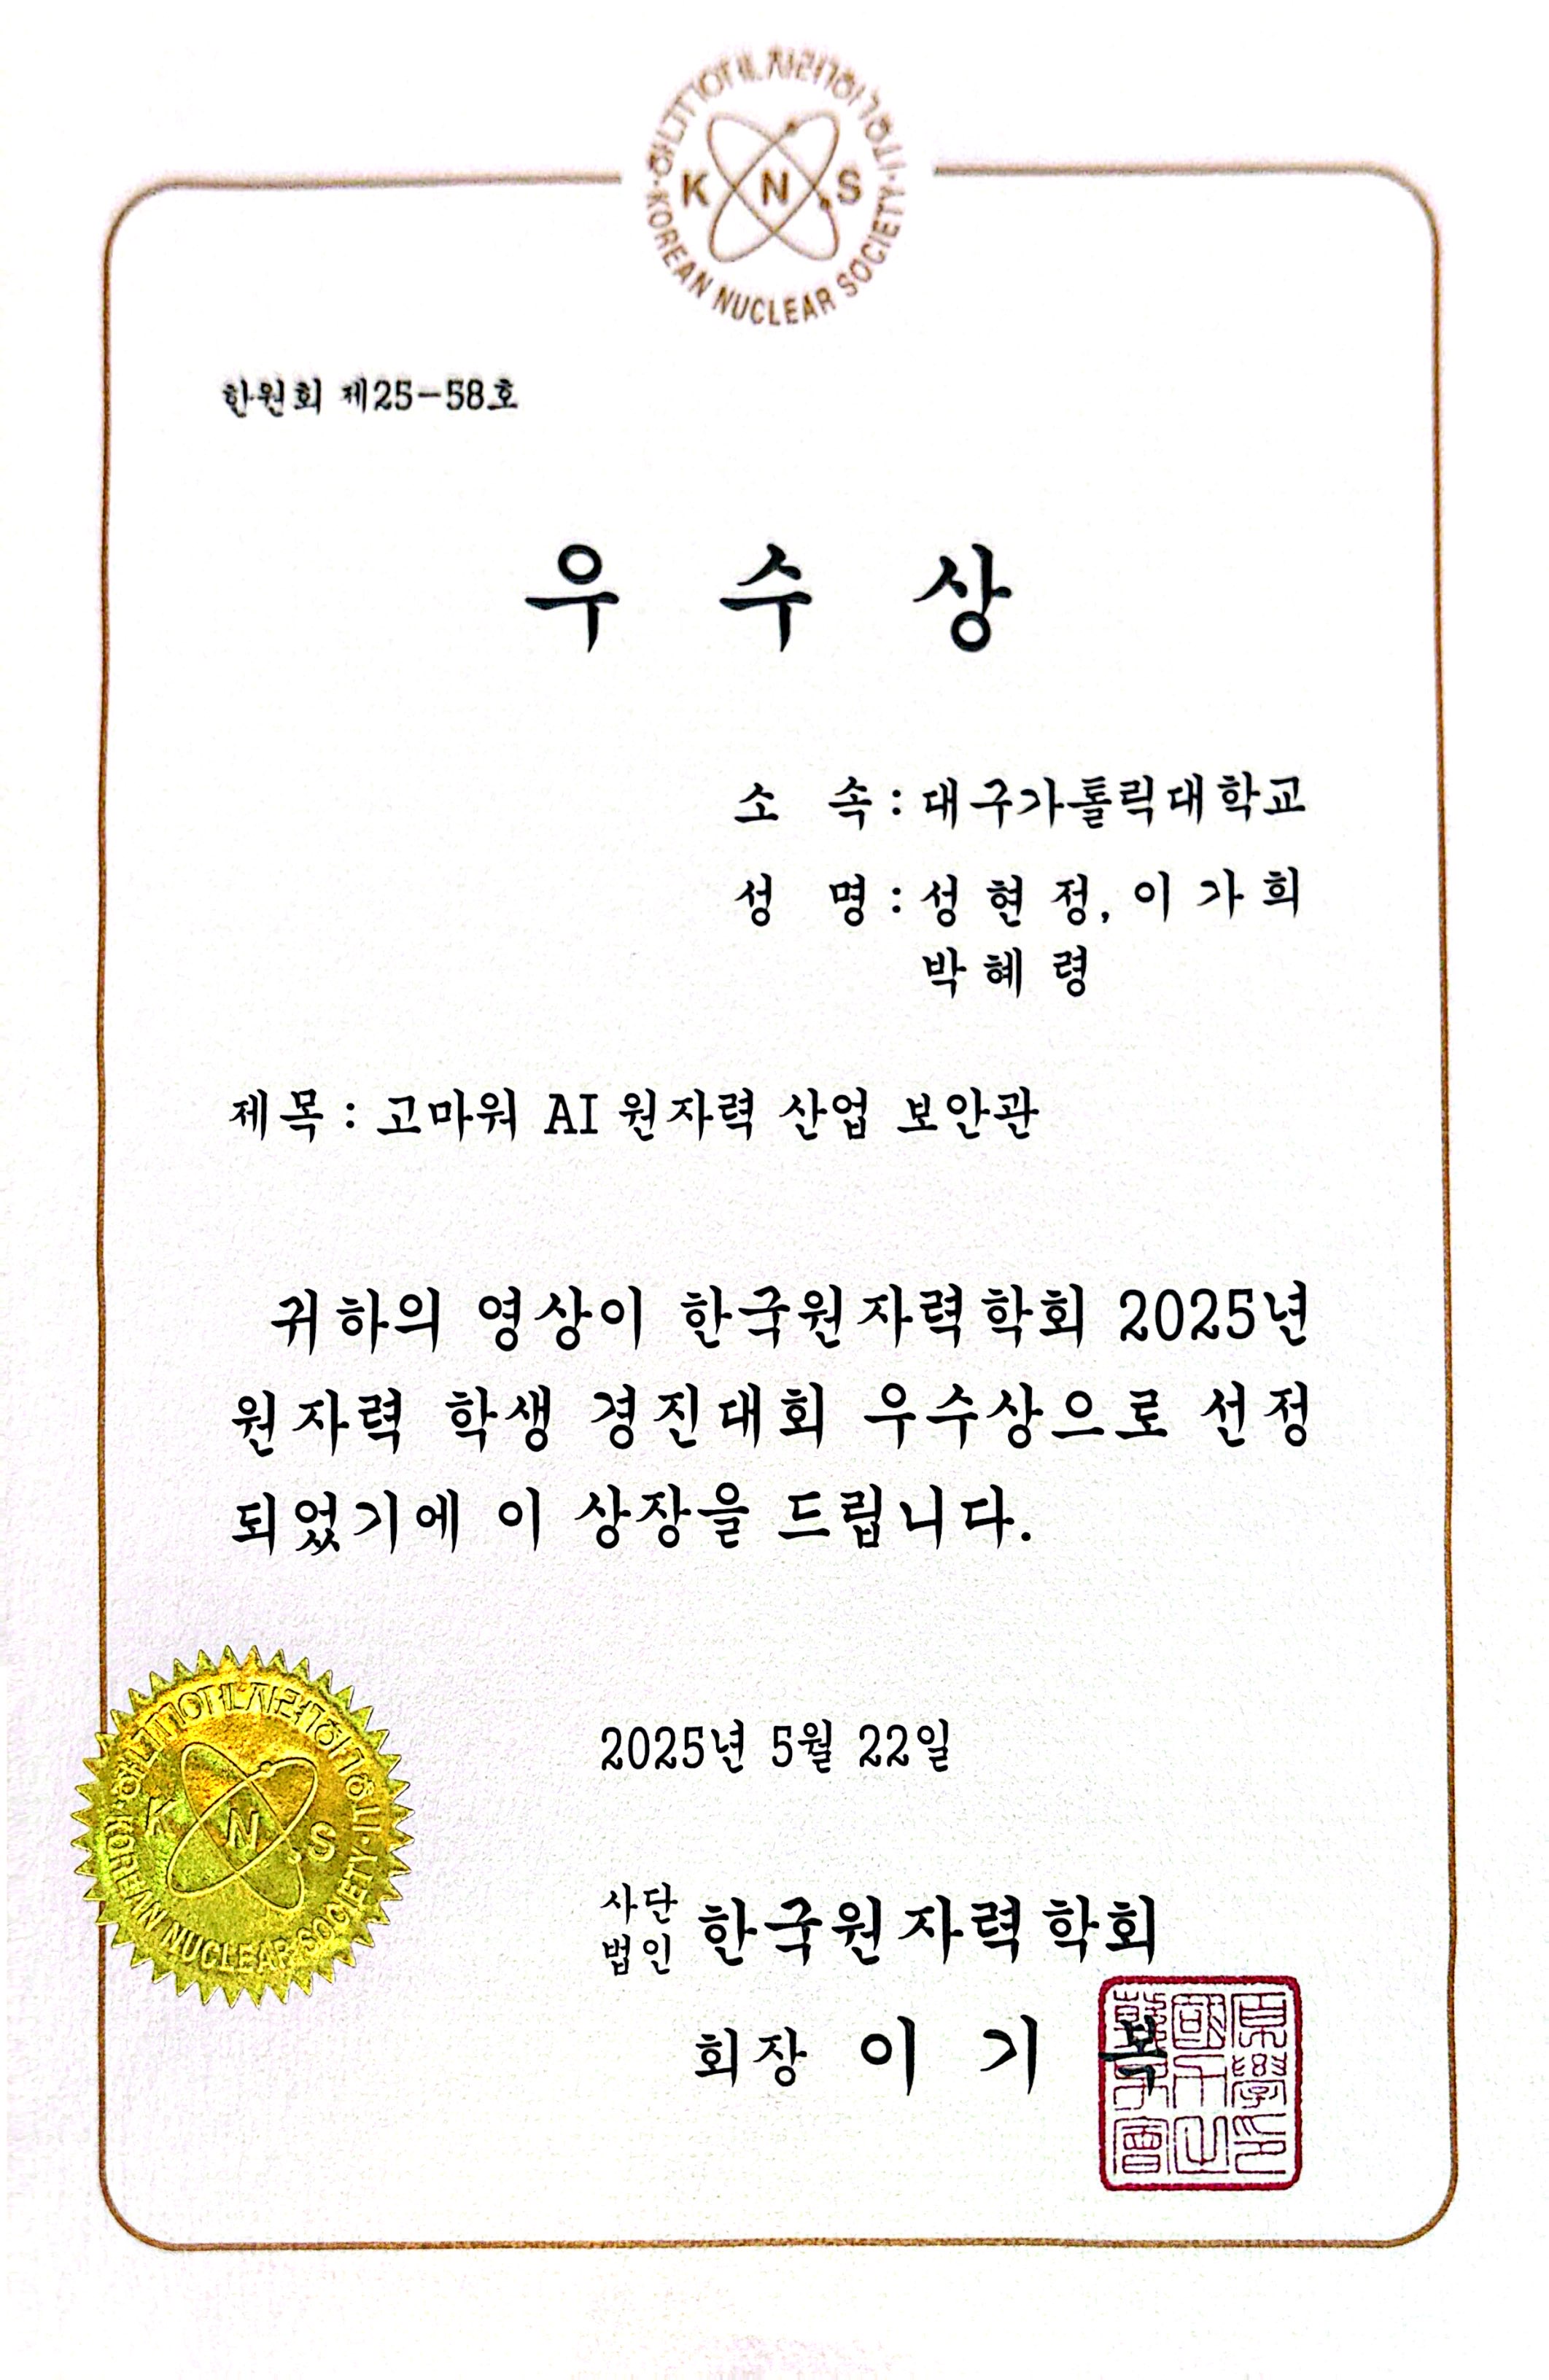 K N S
KOREAN NUCLEAR SOCIETY
한원회 제25-58호
우 수 상
소 속 : 대구가톨릭대학교
성 명 : 성 현 정, 이 가 희
박 혜 령
제 목 : 고마워 AI 원자력 산업 보안관
귀하의 영상이 한국원자력학회 2025년
원자력 학생 경진대회 우수상으로 선정
되었기에 이 상장을 드립니다.
K N S
KOREAN NUCLEAR SOCIETY
2025년 5월 22일
사단
법인 한국원자력학회
회장 이 기 복